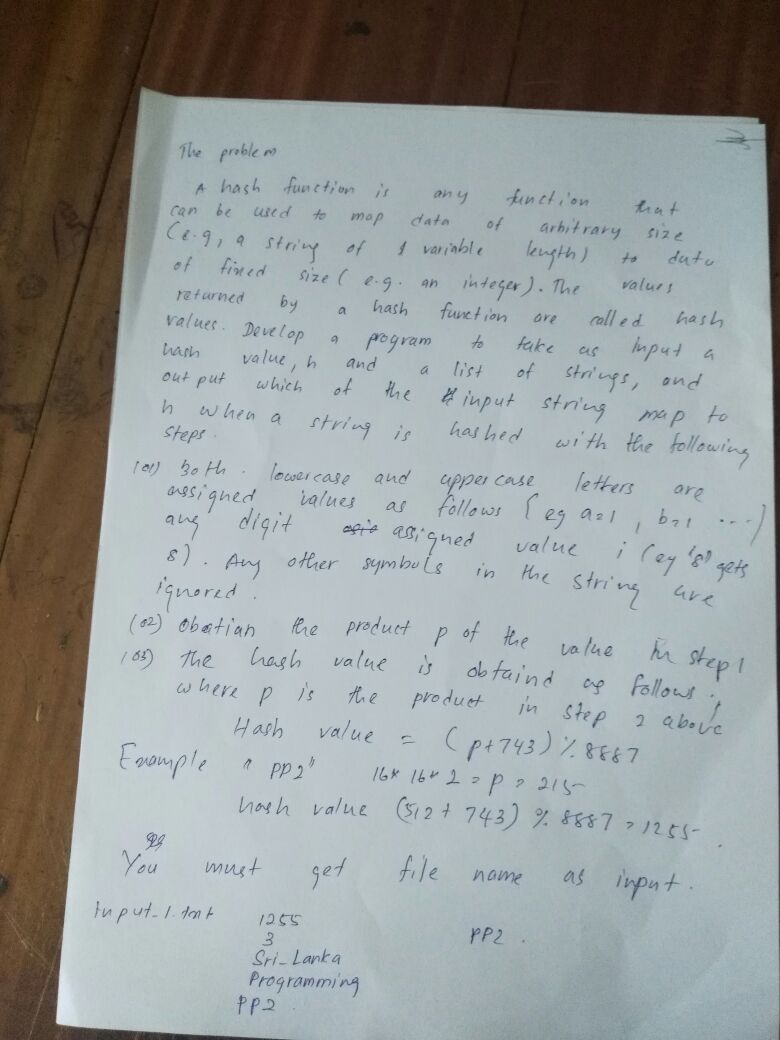 The problem
A hash function is any function that
can be used to map data of arbitrary size
(e.g, a string of variable length) to data
of fixed size (e.g. an integer). The values
returned by a hash function are called hash
values. Develop a program to take as input a
hash value, h and a list of strings, and
out put which of the input string map to
h when a string is hashed with the following
steps.
(01) Both lowercase and upper case letters are
assigned values as follows (eg a=1, b=1 ...)
any digit assigned value i (eg '8' gets
8). Any other symbols in the string are
ignored.
(02) Obatian the product p of the value in step 1
(03) The hash value is obtaind as follows;
where p is the product in step 2 above
Hash value = (p+743) % 8887
Example "PP2" 16* 16* 2 = p = 215
hash value (512 + 743) % 8887 = 1255.
You must get file name as input.
Input_1.txt 1255 PP2.
3
Sri-Lanka
Programming
PP2.